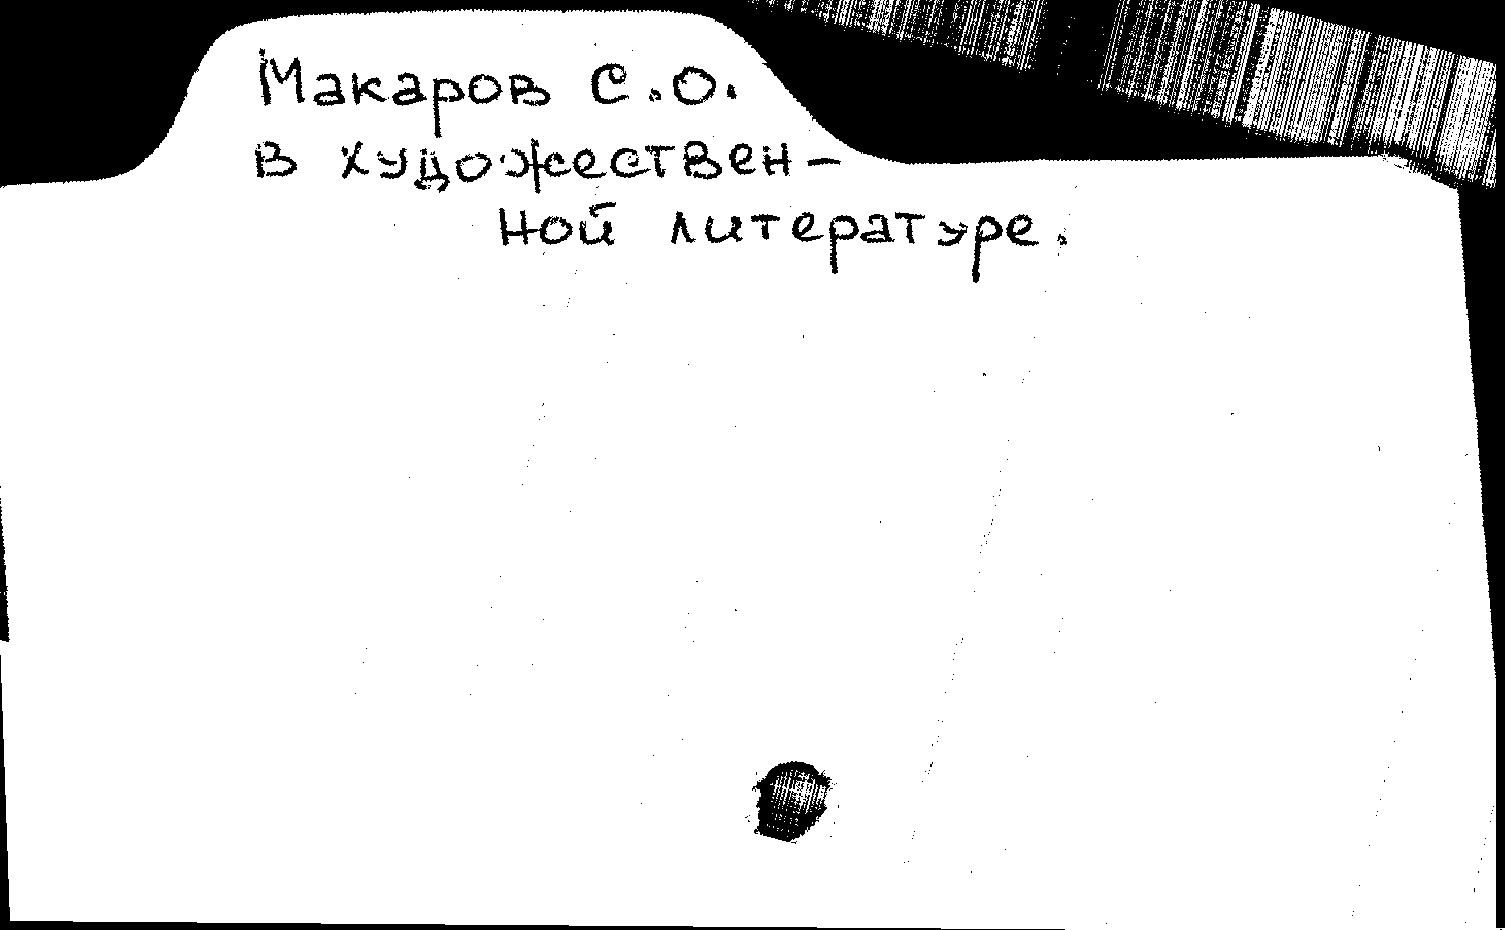 Макаров С.О.
в художествен-
ной литературе.